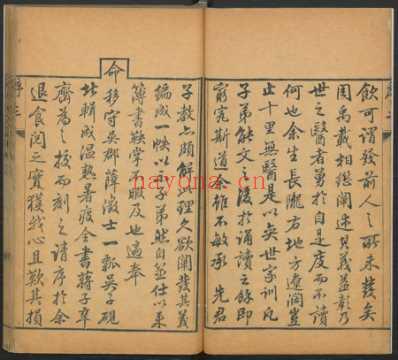 飲可謂發前人之所未發矣
周禹載相繼闡述見義益彰乃
世之醫者勇於自是度而不讀
何也余生長隴右地方遼濶豈
止十里無醫是以矣世家訓凡
子弟能文之後於誦讀之餘即
窮究斯道余雖不敏承 先君
子教亦頗解其理久欲闡發其義
編成一帙以示子弟然自筮仕以來
簿書鞅掌不暇及也適奉
命移守吳郡薛徵士一瓢吳子硯
北輯成溫熱暑疫全書蔣子卓
齋為之授而刻之請序於余
退食閱之實獲我心且歎其損
序三
nayona.cn